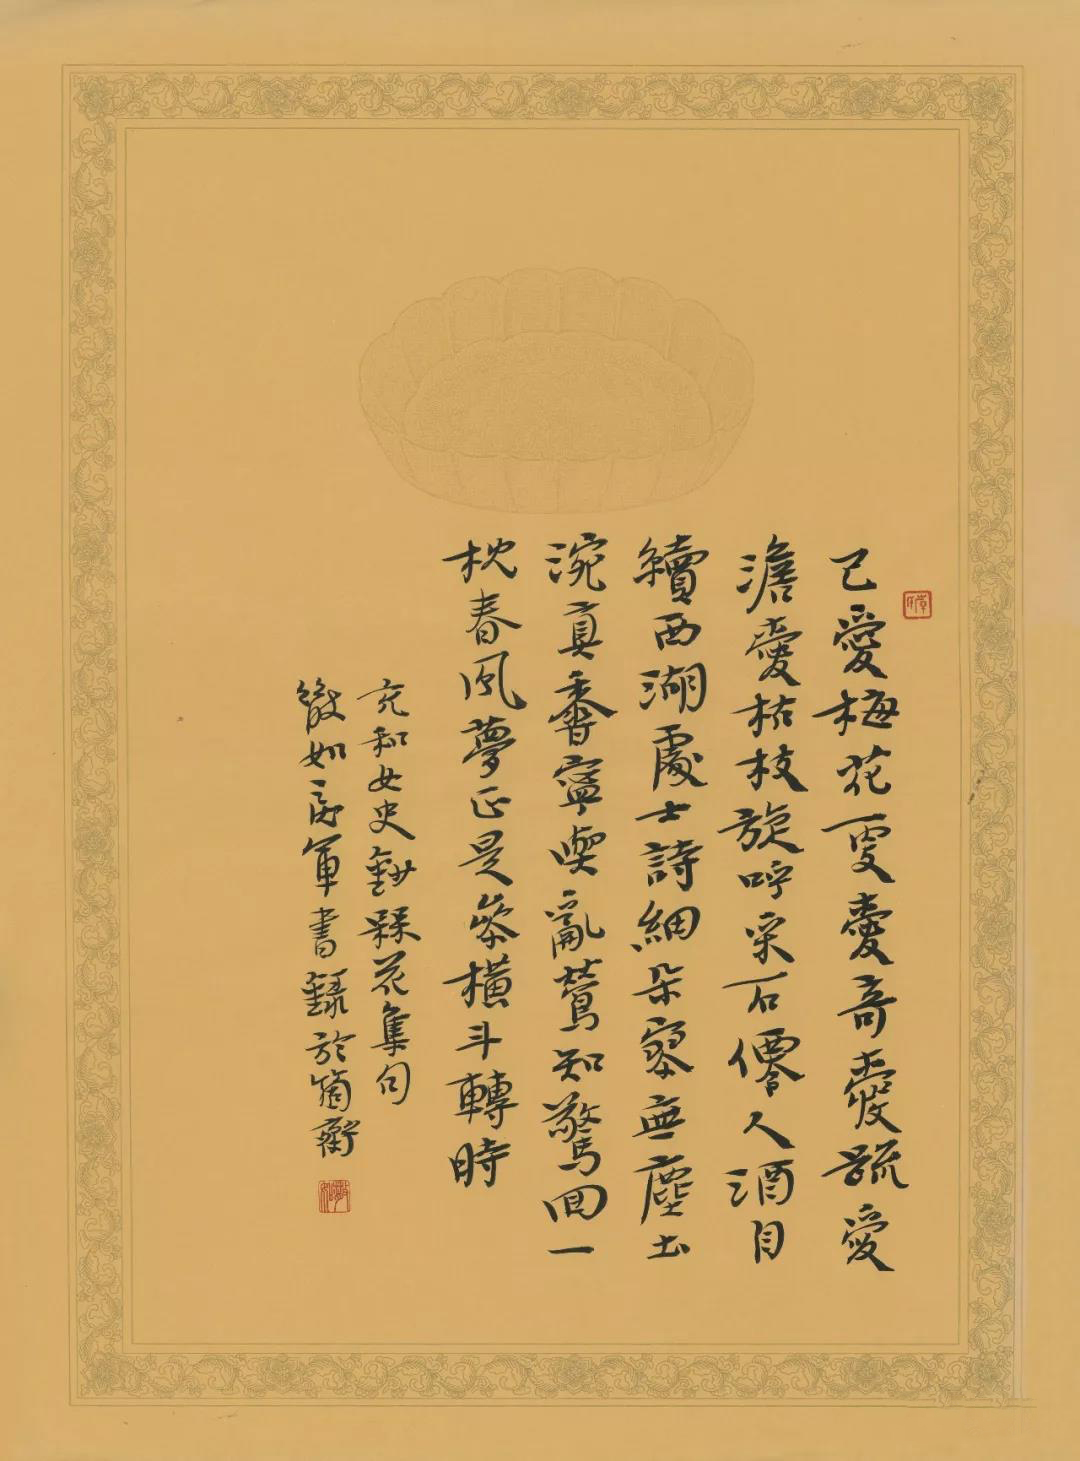 已愛梅花更愛奇愛疏愛
澹愛枯枝旋呼采石僊人酒自
續西湖處士詩細朵寥無塵土
涴真香寧喫亂鶯知驚回一
枕春風夢正是參橫斗轉時
充和女史鈔槑花集句
如高軍書錄於